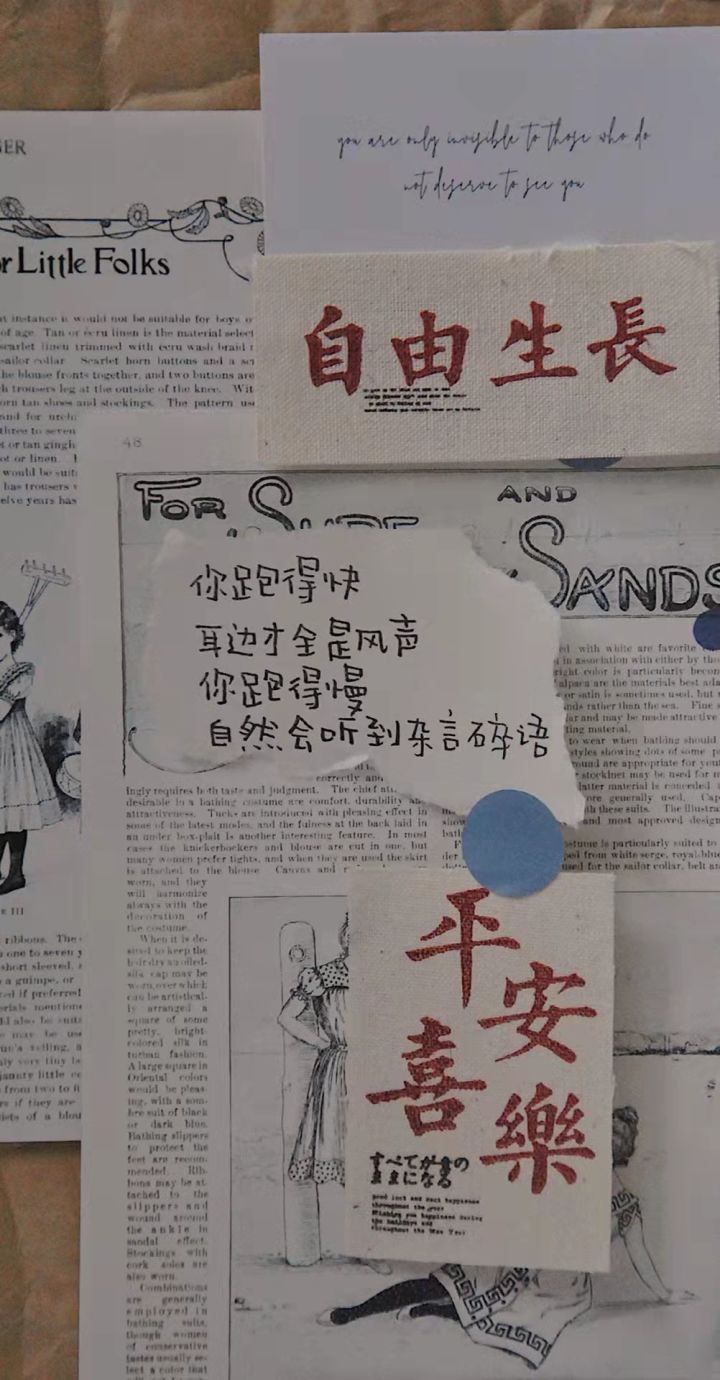 you are only invisible to those who do
not deserve to see you
自由生長
or Little Folks
t instance it would not be suitable for boys o
of age. Tan or ecru linen is the material select
scarlet linen trimmed with ecru wash braid
sailor collar. Scarlet horn buttons and a
he blouse fronts together, and two buttons are
h trousers leg at the outside of the knee. Wit
orn tan shoes and stockings. The pattern
three to seven
or linen.
would be
has trousers
elve years has
48
FOR AND
SANDS
你跑得快
耳边才全是风声
你跑得慢
自然会听到杂言碎语
ed with white are favorite
in association with either by
right color is particularly
alpaca are the materials best
or satin is sometimes used, but
rather than the sea. Fine
and may be made attractive
ting material.
to wear when bathing should
styles showing dots of some
are appropriate for
stockinet may be used for
latter material is conceded
generally used.
these suits. The
and most approved
correctly and
ingly requires both taste and judgment. The chief
desirable in a bathing costume are comfort, durability
attractiveness. Tucks are introduced with pleasing effect in
some of the latest modes, and the fulness at the back laid in
an under box-plait is another interesting feature. In most
cases the knickerbockers and blouse are cut in one, but
many women prefer tights, and when they are used the skirt
is attached to the blouse. Canvas and
is particularly suited to
from white serge, royal-blue
used for the sailor collar, belt
worn, and they
will harmonize
always with the
decoration of
the costume.
When it is de-
sired to keep the
hair dry an oiled-
silk cap may be
worn, over which
can be artistical-
ly arranged a
square of some
pretty, bright-
colored silk in
turban fashion.
A large square in
Oriental colors
would be pleas-
ing, with a som-
bre suit of black
or dark blue.
Bathing slippers
to protect the
feet are recom-
mended. Rib-
bons may be at-
tached to the
slippers and
wound around
the ankle in
sandal effect.
Stockings with
cork soles are
also worn.
Combinations
are generally
employed in
bathing suits,
though women
of conservative
tastes usually se-
lect a color that
III
ribbons. The
one to seven
short sleeved,
a guimpe, or
if preferred
from two to
if they are
of a
平安
喜樂
すべてが君の
ままになる
good luck and best happiness
throughout the year
Wishing you happiness during
the holidays and
throughout the New Year